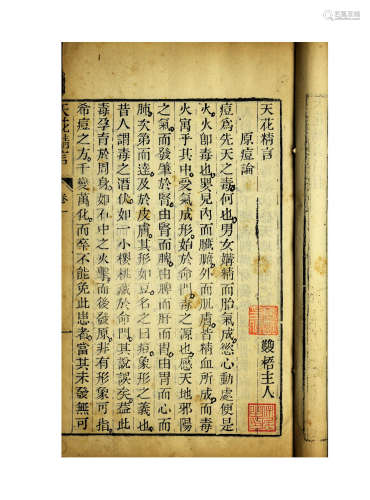 天花精言
雙梧主人
原痘論
痘爲先天之毒何也男女媾精而胎氣成慾心動處便是
火火卽毒也嬰兒內而臟腑外而肌膚皆精血所成而毒
火寓乎其中受氣成形始於命門毒之源也感天地邪陽
之氣而發肇於腎由腎而脾由脾而肝由肝而心而
肺次第而達及於皮膚其形如豆名之曰痘象形之義也
昔人謂毒之潛伏如一小櫻桃藏於命門其說誤矣蓋此
毒孕育於周身如石中之火擊而後發原非有形象可指
希痘之方千變萬化而卒不能免此患者當其未發無可
天花精言
卷一